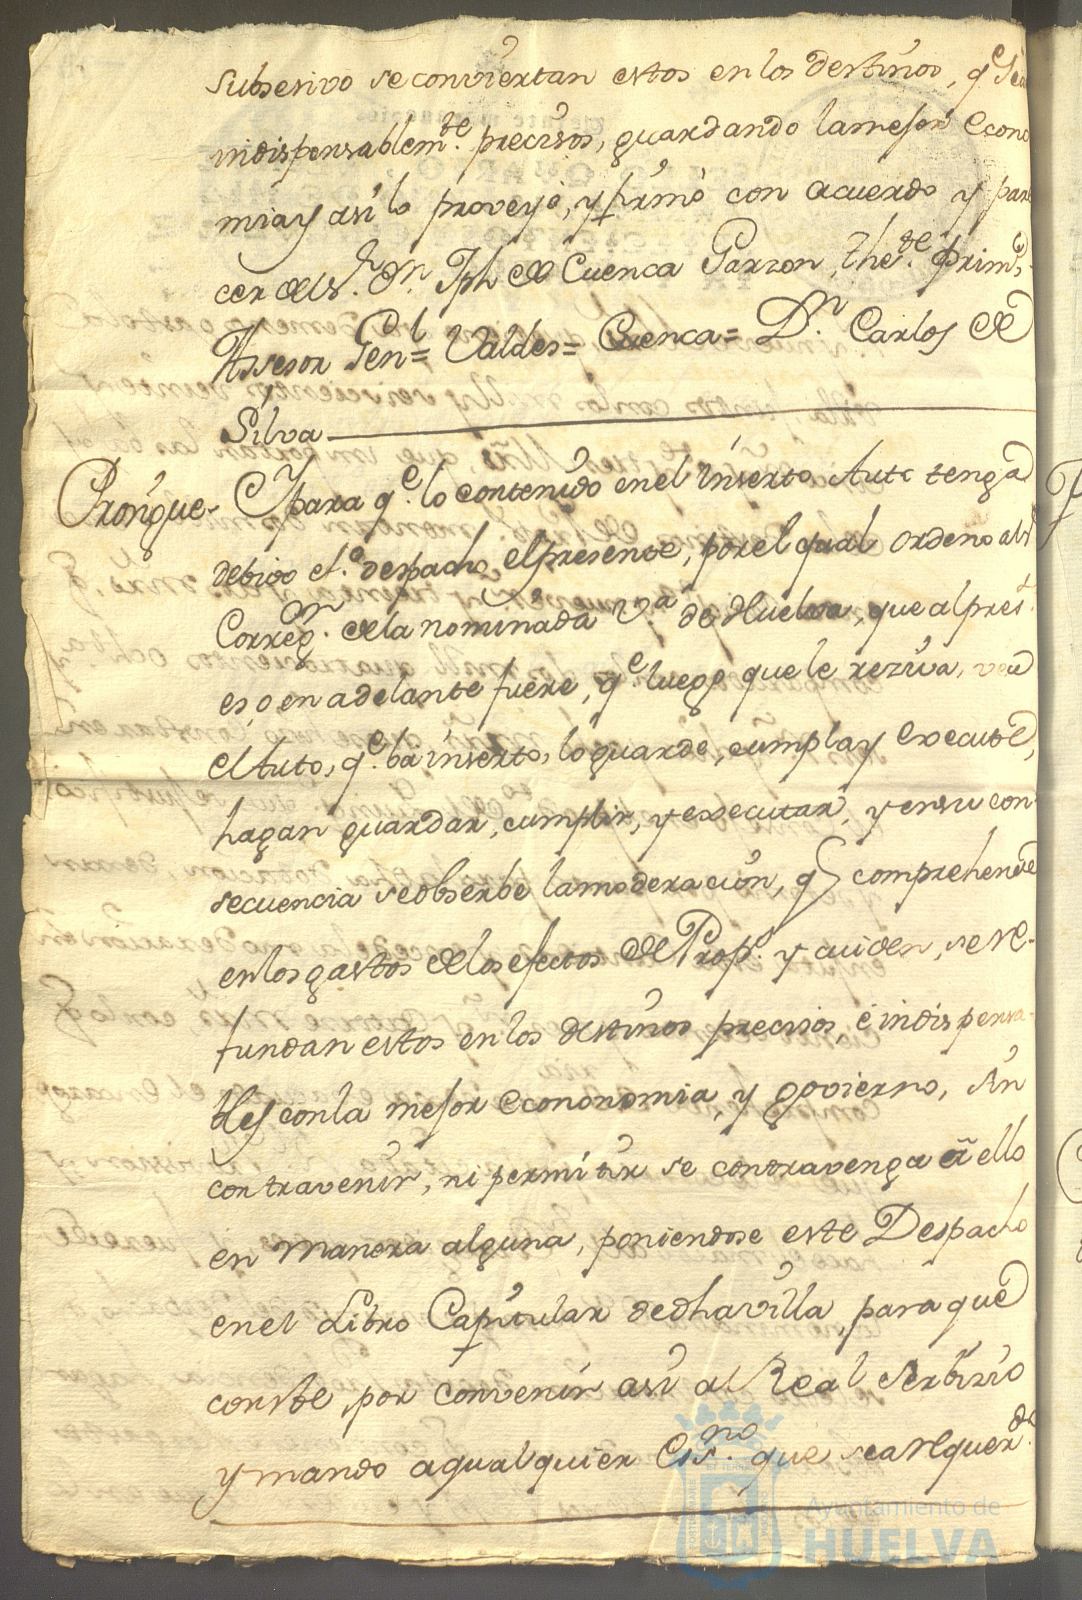 subsesivo se conviertan estos en los destinos, q.e sean
indispensablem.te precisos, guardando la mejor econo
mia y asi lo proveyò, y firmò con acuerdo y pare
cer del s.r D.n Jph de Cuenca Garzon, the.te primo,
Assesor Gen.l = Valdes = Cuenca = D.n Carlos de
Silva
Prosigue - Y para q.e lo contenido en el inserto Auto tenga
debido ef.o despacho el presente, por el qual ordeno al S.r
Correg.or de la nominada V.a de Huelva, que al pres.te
es, o en adelante fuere, q.e luego que le reziva, vea
el Auto, q.e bà inserto, lo guarde, cumpla y execute,
hagan guardar, cumplir, y executar, y en su con-
secuencia se obserbe la moderacion, q.e comprehende
en los gastos de los efectos de Prop.s y cuiden, se re-
fundan estos en los destinos precisos, è indispensa-
bles con la mejor econonomia, y govierno, sin
contravenir, ni permitir se contravenga à ello
en manera alguna, poniendose este Despacho
en el Libro Capitular de dha villa, para que
conste, por convenir asi al Real Serbizio
y mando a qualquier Ess.no que sea requer.do
Ayuntamiento de
HUELVA